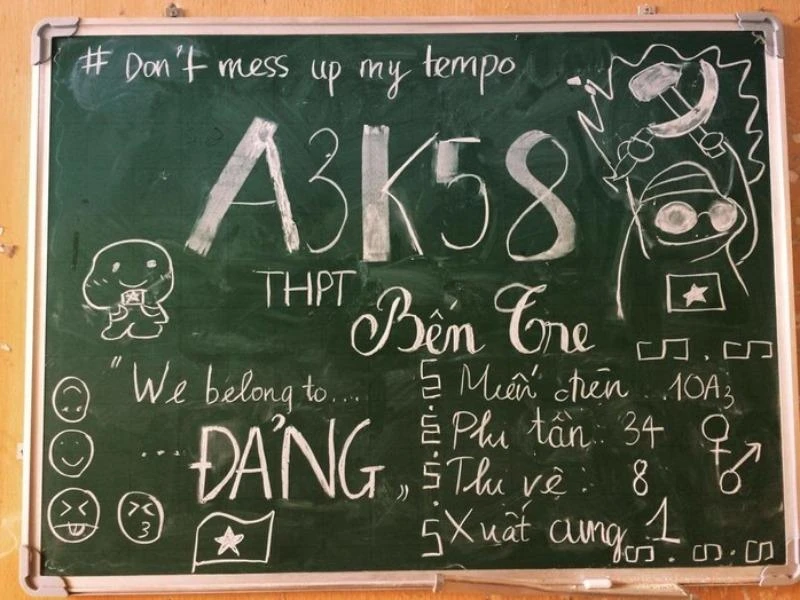 # Don't mess up my tempo
A3K58
THPT
Bến Tre
"We belong to...
... ĐẢNG"
Miến diện .. 10A3
Phi tần .. 34
Thị vệ : 8
Xuất cung 1